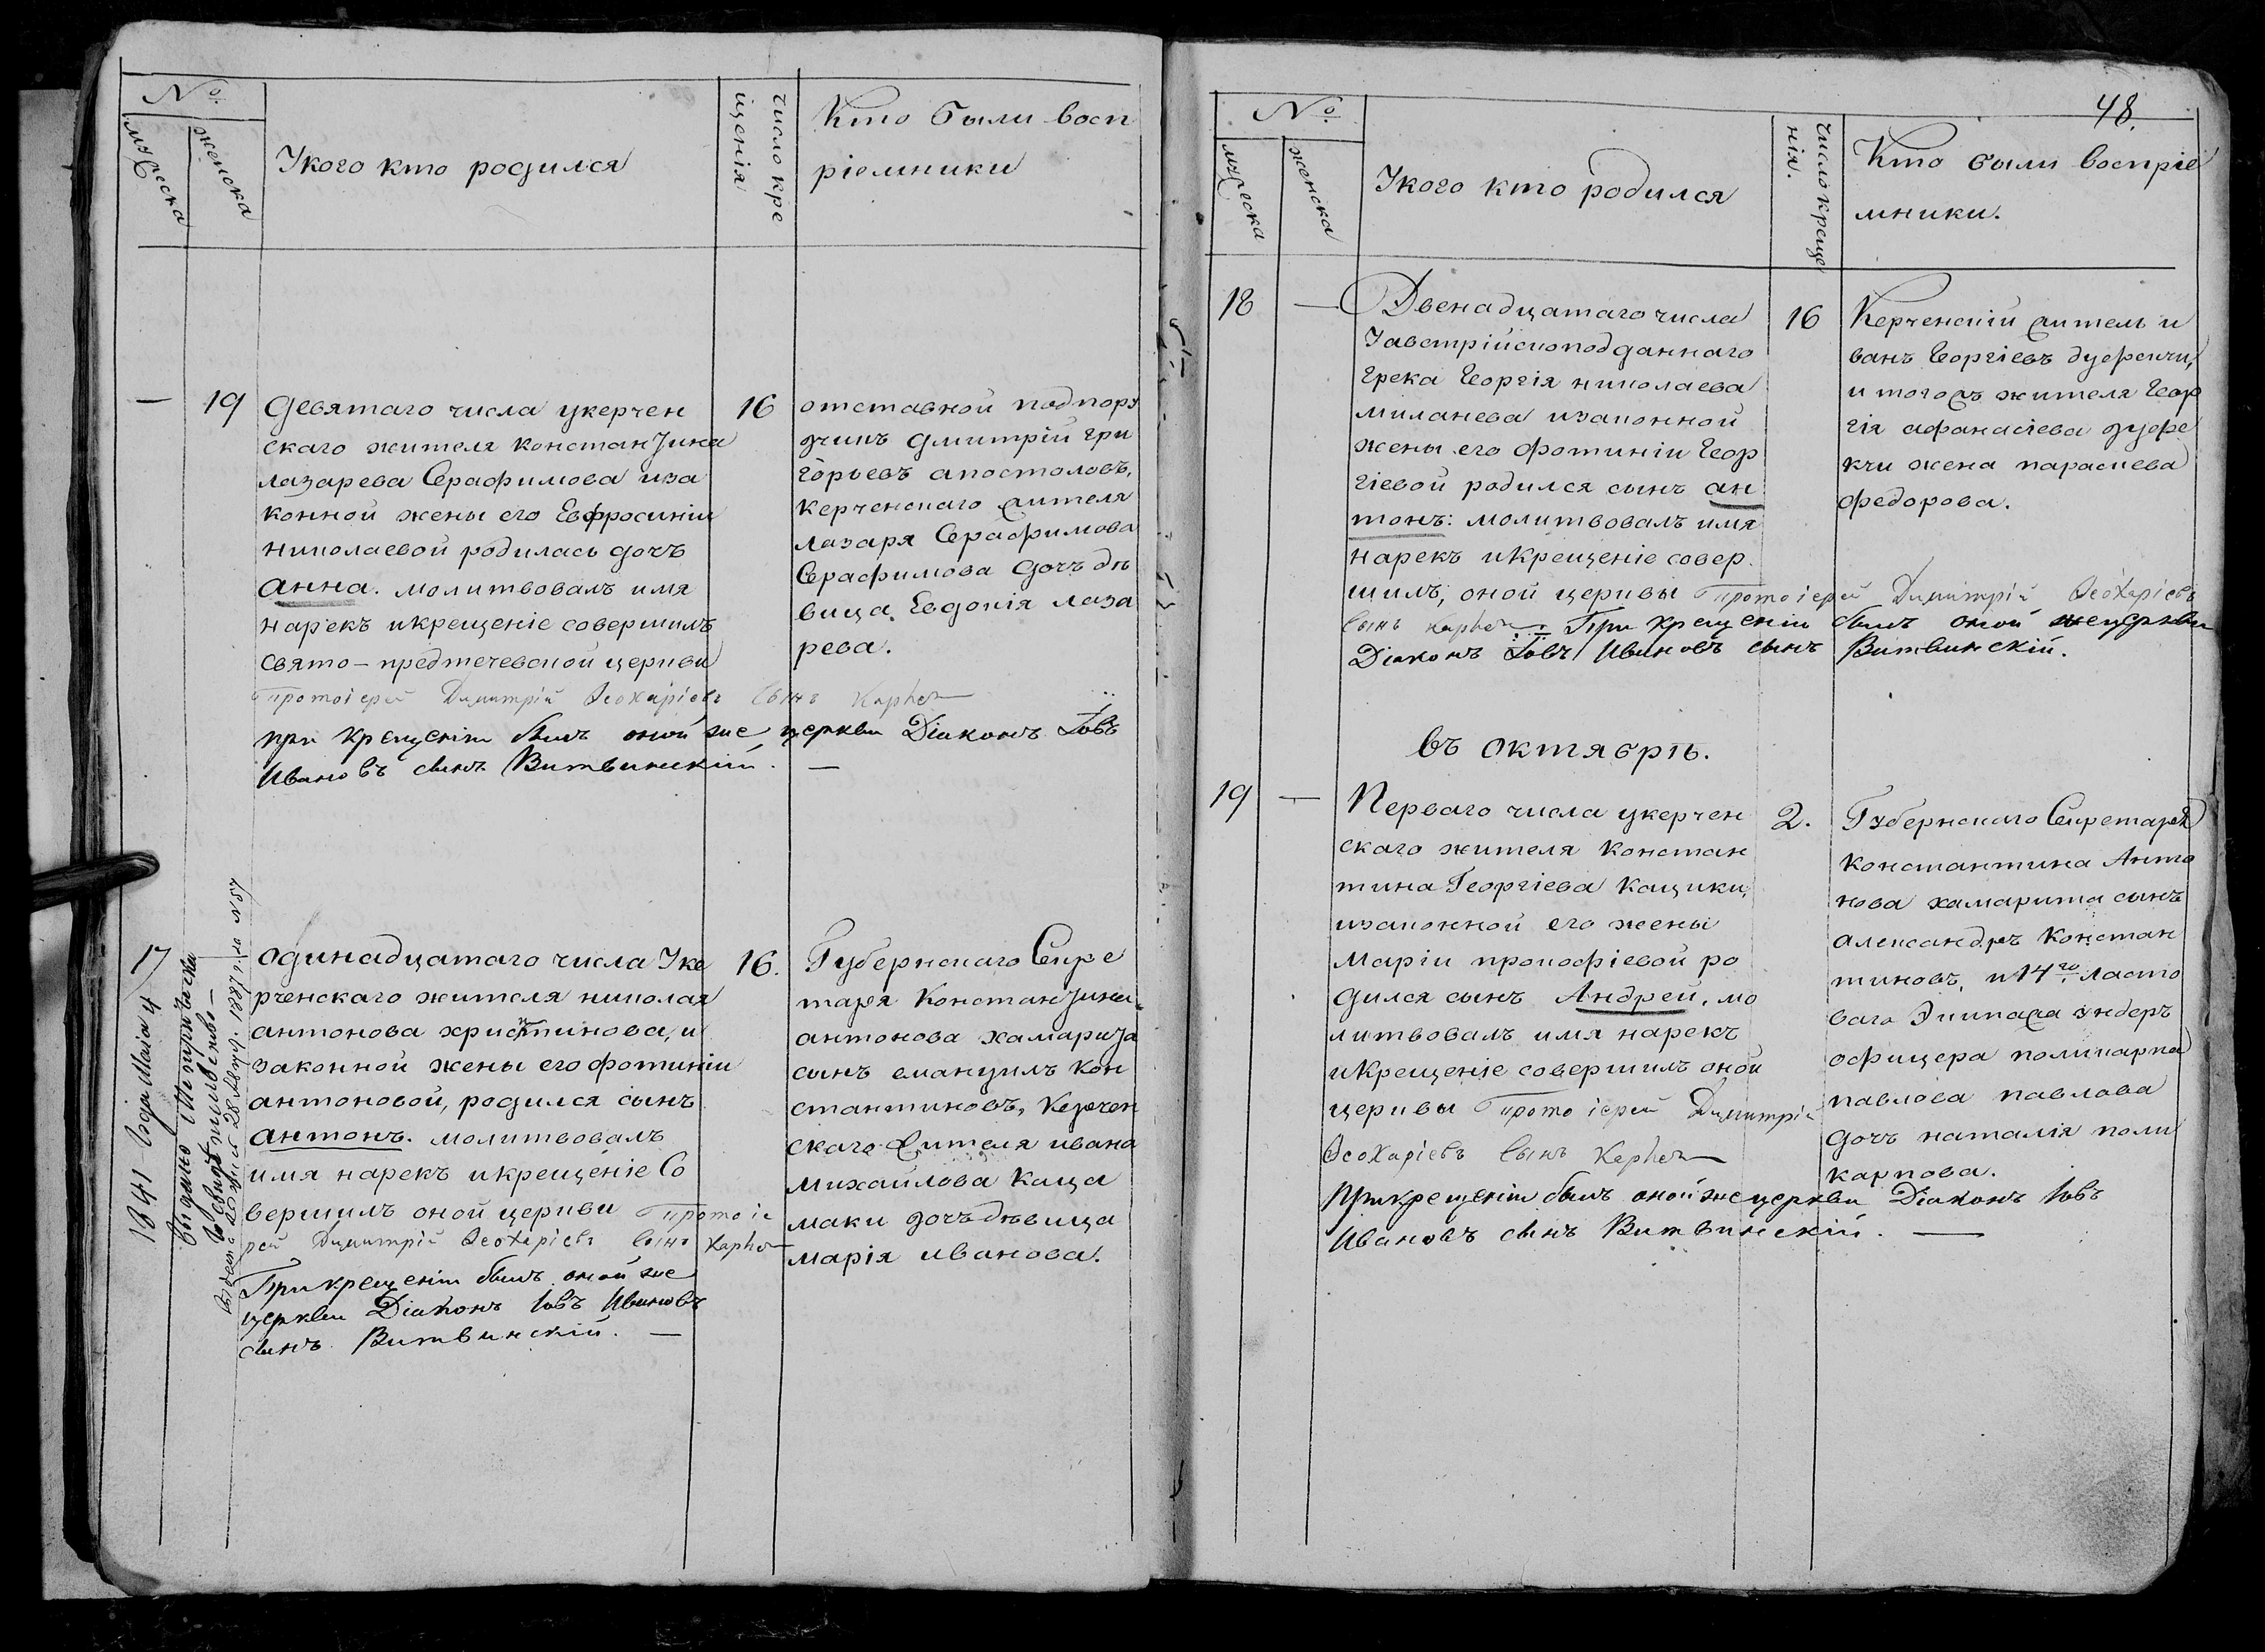 №
мужеска
женска
Укого кто родился
число кре
щенія
Кто были восп
ріемники
—
19
девятаго числа укерчен
скаго жителя константина
лазарева Серафимова иза
конной жены его Евфросиніи
николаевой родилась дочъ
анна. молитвовалъ имя
нарекъ икрещеніе совершилъ
свято-предтечевской церкви
протоіерей Димитрій Ѳеохаріевъ сынъ
при крещеніи былъ оной же церкви Діаконъ Іовъ
Ивановъ сынъ Витвинскій. —
16
отставной подпору
дчикъ дмитрій гри
горьевъ апостоловъ,
керченскаго жителя
лазаря Серафимова
Серафимова дочъ дѣ
вица Евдокія лаза
рева.
17
1841 года Маія 4
выдано
свидѣтельство —
№ 57
одинадцатаго числа Уке
рченскаго жителя николая
антонова христинова, и
законной жены его фотиніи
антоновой, родился сынъ
антонъ. молитвовалъ
имя нарекъ икрещеніе Со
вершилъ оной церкви протоіе
рей Димитрій Ѳеохаріевъ сынъ
При крещеніи былъ оной же
церкви Діаконъ Іовъ Ивановъ
сынъ Витвинскій. —
16.
Губернскаго Секре
таря Константина
антонова хамарита
сынъ емануилъ кон
стантиновъ, Керчен
скаго жителя ивана
михайлова каца
маки дочъ дѣвица
марія иванова.
48.
№
мужеска
женска
Укого кто родился
число креще
нія.
Кто были воспріе
мники.
18
—
Двенадцатаго числа
Уавстрійскоподданнаго
грека георгія николаева
миланева изаконной
жены его фотиніи Геор
гіевой родился сынъ ан
тонъ: молитвовалъ имя
нарекъ икрещеніе совер
шилъ, оной церквы протоіерей Димитрій Ѳеохаріевъ
сынъ При крещеніи былъ оной же церкви
Діаконъ Іовъ Ивановъ сынъ Витвинскій.
16
Керченскій житель и
ванъ Георгіевъ
и того жъ жителя Геор
гія афанасіева
жена параскева
федорова.
въ октябрѣ.
19
—
Перваго числа укерчен
скаго жителя констан
тина Георгіева Кацики,
изаконной его жены
Маріи прокофіевой ро
дился сынъ Андрей, мо
литвовалъ имя нарекъ
икрещеніе совершилъ оной
церквы Протоіерей Димитрій
Ѳеохаріевъ сынъ
При крещеніи былъ оной же церкви Діаконъ Іовъ
Ивановъ сынъ Витвинскій. —
2.
Губернскаго Секретаря
константина Анто
нова хамарита сынъ
александръ констан
тиновъ, и 14го ласто
ваго Экипажа ундеръ
офицера поликарпа
павлова павлова
дочъ наталія поли
карпова.